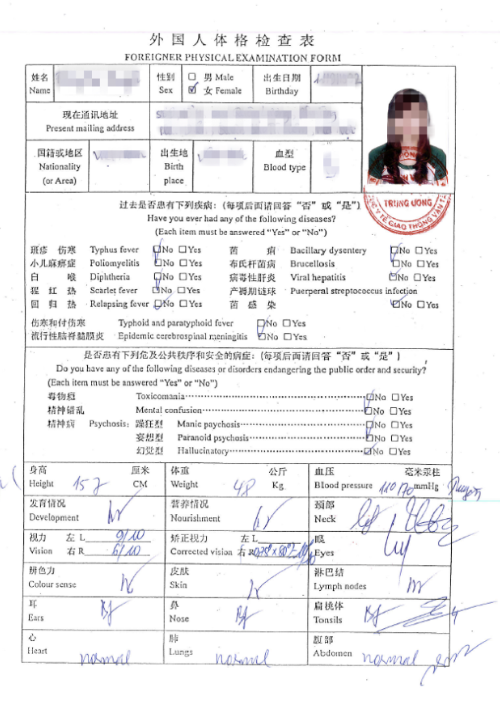 外国人体格检查表
FOREIGNER PHYSICAL EXAMINATION FORM
姓名
Name
性别
Sex
男 Male
女 Female
出生日期
Birthday
现在通讯地址
Present mailing address
国籍或地区
Nationality
(or Area)
出生地
Birth
place
血型
Blood type
TRUNG ƯƠNG
过去是否患有下列疾病：(每项后面请回答“否”或“是”)
Have you ever had any of the following diseases?
(Each item must be answered "Yes" or "No")
斑疹 伤寒 Typhus fever No Yes 菌 痢 Bacillary dysentery No Yes
小儿麻痹症 Poliomyelitis No Yes 布氏杆菌病 Brucellosis No Yes
白 喉 Diphtheria No Yes 病毒性肝炎 Viral hepatitis No Yes
猩 红 热 Scarlet fever No Yes 产褥期链球 Puerperal streptococcus infection
回 归 热 Relapsing fever No Yes 菌 感 染 No Yes
伤寒和付伤寒 Typhoid and paratyphoid fever No Yes
流行性脑脊髓膜炎 Epidemic cerebrospinal meningitis No Yes
是否患有下列危及公共秩序和安全的病症：(每项后面请回答“否”或“是”)
Do you have any of the following diseases or disorders endangering the public order and security?
(Each item must be answered "Yes" or "No")
毒物瘾 Toxicomania No Yes
精神错乱 Mental confusion No Yes
精神病 Psychosis: 躁狂型 Manic psychosis No Yes
妄想型 Paranoid psychosis No Yes
幻觉型 Hallucinatory No Yes
身高 厘米
Height 157 CM
体重 公斤
Weight 48 Kg
血压 毫米汞柱
Blood pressure 110/70 mmHg
发育情况
Development
营养情况
Nourishment
颈部
Neck
视力 左 L 9/10
Vision 右 R 6/10
矫正视力 左 L
Corrected vision 右 R
眼
Eyes
辨色力
Colour sense
皮肤
Skin
淋巴结
Lymph nodes
耳
Ears
鼻
Nose
扁桃体
Tonsils
心
Heart normal
肺
Lungs normal
腹部
Abdomen normal